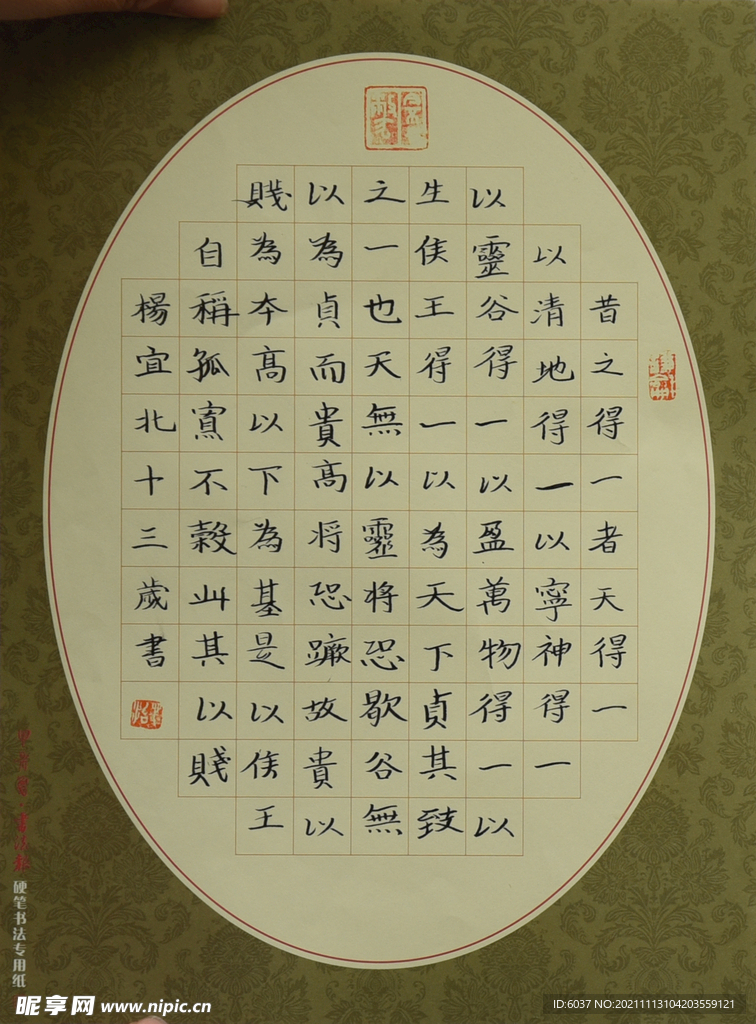 昔之得一者天得一
以清地得一以寧神得一
以靈谷得一以盈萬物得一以
生侯王得一以為天下貞其致
之一也天無以靈将恐歇谷無
以為貞而貴高将恐蹶故貴以
賤為夲高以下為基是以侯王
自稱孤寡不穀此其以賤
楊宜北十三歲書
硬笔书法专用纸
昵享网 www.nipic.cn
ID:6037 NO:20211113104203559121